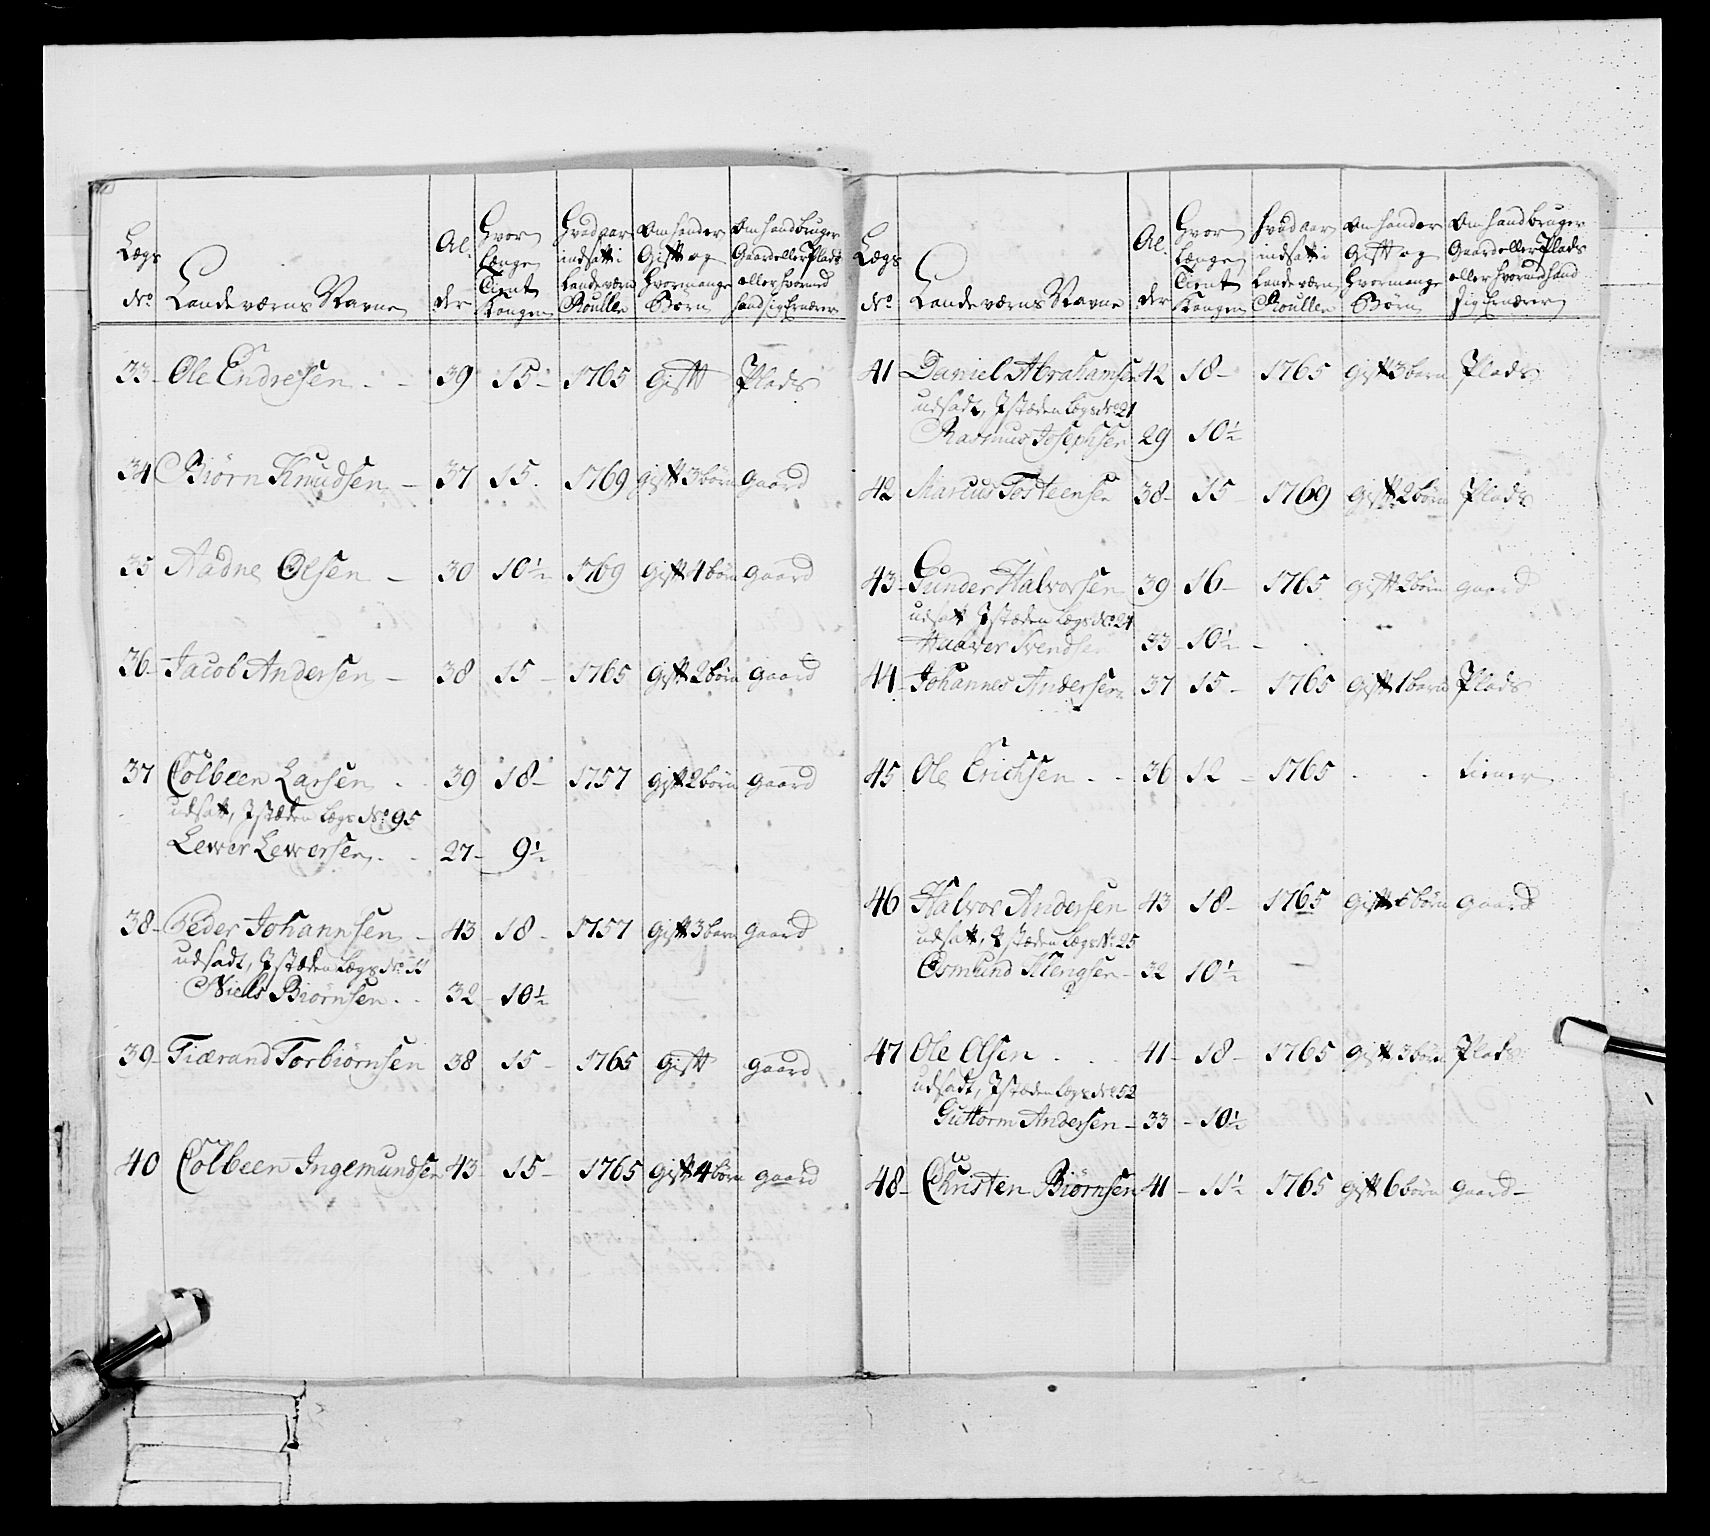 Lægs No Lande værns Navne Al. der Hvor Længe Tient Kongen Hvad aar indsatt i Landeværn Roulle Om hand er Gift og Hvormange Børn Om hand bruger Gaard eller Plads eller hvormed hand sig Ernærer
33 Ole Endresen - - 39 15 - 1765 Gift Plads
34 Biørn Knudsen - 37 15. 1769 gift 3 børn gaard
35 Aadne Olsen - 30 10½ 1769 gift 4 børn gaard
36 - Jacob Andersen - 38 15 - 1765 gift 2 børn gaard
37 Colbeen Larsen 39 18 - 1757 gift 2 børn gaard
udsatt, I stæden Lægs No 95
Lewer Lewersen 27 - 9½
38 - Peder Johannsen - 43 18 - 1757 gift 3 barn gaard
udsadt, I stæden Lægs No 11
Niels Biørnsen 32 - 10½
39 - Tiærand Torbiørnsen 38 15 - 1765 gift gaard
40 Colbeen Ingemundsen 43 15 - 1765 gift 4 børn gaard
Lægs No Lande værns Navne Al. der Hvor Længe Tient Kongen Hvad aar indsatt i Lande værn Roulle Om hand er gift og Hvormange Børn Om hand bruger Gaard eller Plads eller hvormed hand sig Ernærer
41 Daniel Abrahamsen 42 18 - 1765 gift 3 barn Plads
udsadt, I stæden Lægs No 21
Rasmus Josephsen 29 10½
42 Marcus Tosteensen 38 - 15 - 1769 gift 2 børn Plads
43 - Gunder Halvorsen 39 16 - 1765 gift 2 børn gaard
udsatt I stæden Lægs No 24
Haaver Svendsen 33 - 10½ -
44 - Johannes Andersen 37 15 - 1765 gift 1 barn Plads
45 Ole Erichsen - - 36 12 - 1765 - - tiener
46 Halvor Andersen 43 18 - 1765 gift 5 børn gaard
udsatt, I stæden Lægs No 25
Osmund Klengsen - 32 10½
47 Ole Olsen 41 - 18 - 1765 gift 3 børn Plads
udsadt, I stæden Lægs No 52
Guttorm Andersen - 33 - 10½
48 - Christen Biørnsen 41 - 11½ 1765 gift 6 børn gaard -